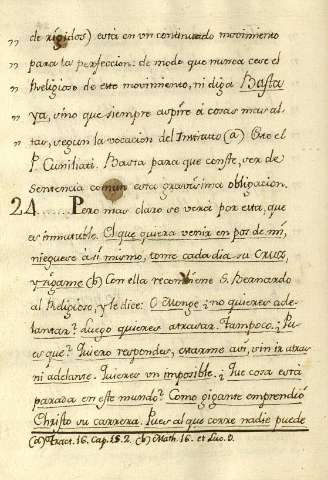 " de rigidos) està en vn continuado movimiento
" para la perfeccion: de modo que nunca cese el
" Religioso de este movimiento, ni diga Basta
" ya, sino que siempre aspire à cosas mas al-
tas, segun la vocacion del Instituto (a) Esto el
P. Cuniliati. Basta para que conste, ser de
Sentencia comun esta gravisima obligacion.
24...... Pero mas claro se verà por esta, que
es inmutable. El que quiera venir en pos de mi,
nieguese à si mismo, tome cada dia su Cruz,
y sigame (b) Con ella reconviene S. Bernardo
al Religioso, y le dice: O Monge ¿no quieres ade-
lantar? Luego quieres atrasar. Tampoco. ¿Pu-
es que? Quiero, respondes, estarme asi, sin ir atras
ni adelante. Quieres un imposible. ¿Que cosa està
parada en este mundo? Como gigante emprendiò
Christo su carrera. Pues al que corre nadie puede
(a) Tract. 16. Cap. 1 §. 2. (b) Math. 16. et Luc. 9.